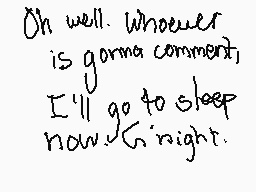 Oh well. Whoever
is gonna comment,
I'll go to sleep
now. G'night.